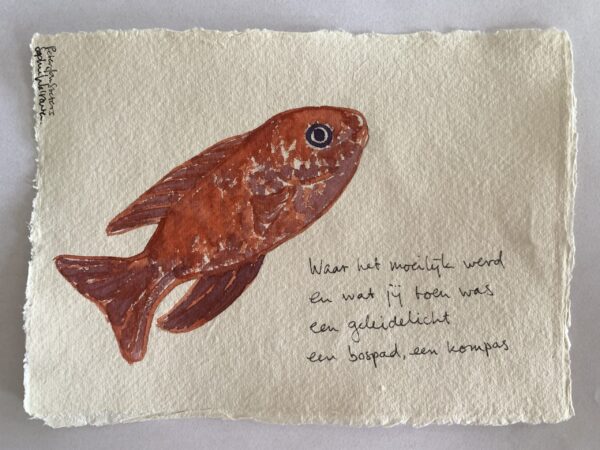 Waar het moeilijk werd
en wat jij toen was
een geleidelicht
een bospad, een kompas